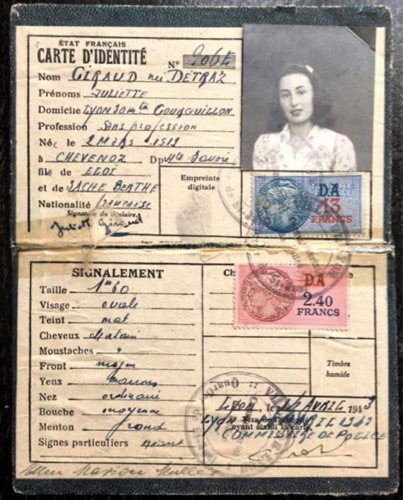 ÉTAT FRANÇAIS
CARTE D'IDENTITÉ
N° 2064
Nom GIRAUD née DETRAZ
Prénoms JULIETTE
Domicile LYON 30 mtée Gourguillon
Profession Sans profession
Née le 2 Mars
à CHEVENOZ Dpt Hte Savoie
fille de ELOI
et de BERTHE
Nationalité française
Signature du titulaire,
Juliett Giraud
Empreinte
digitale
DA
13
FRANCS
SIGNALEMENT
Taille 1m60
Visage ovale
Teint mat
Cheveux chatain
Moustaches
Front moyen
Yeux marrons
Nez ordinaire
Bouche moyenne
Menton rond
Signes particuliers néant
DA
2.40
FRANCS
Timbre
humide
LYON, le AVRIL 1943
COMMISSAIRE DE POLICE